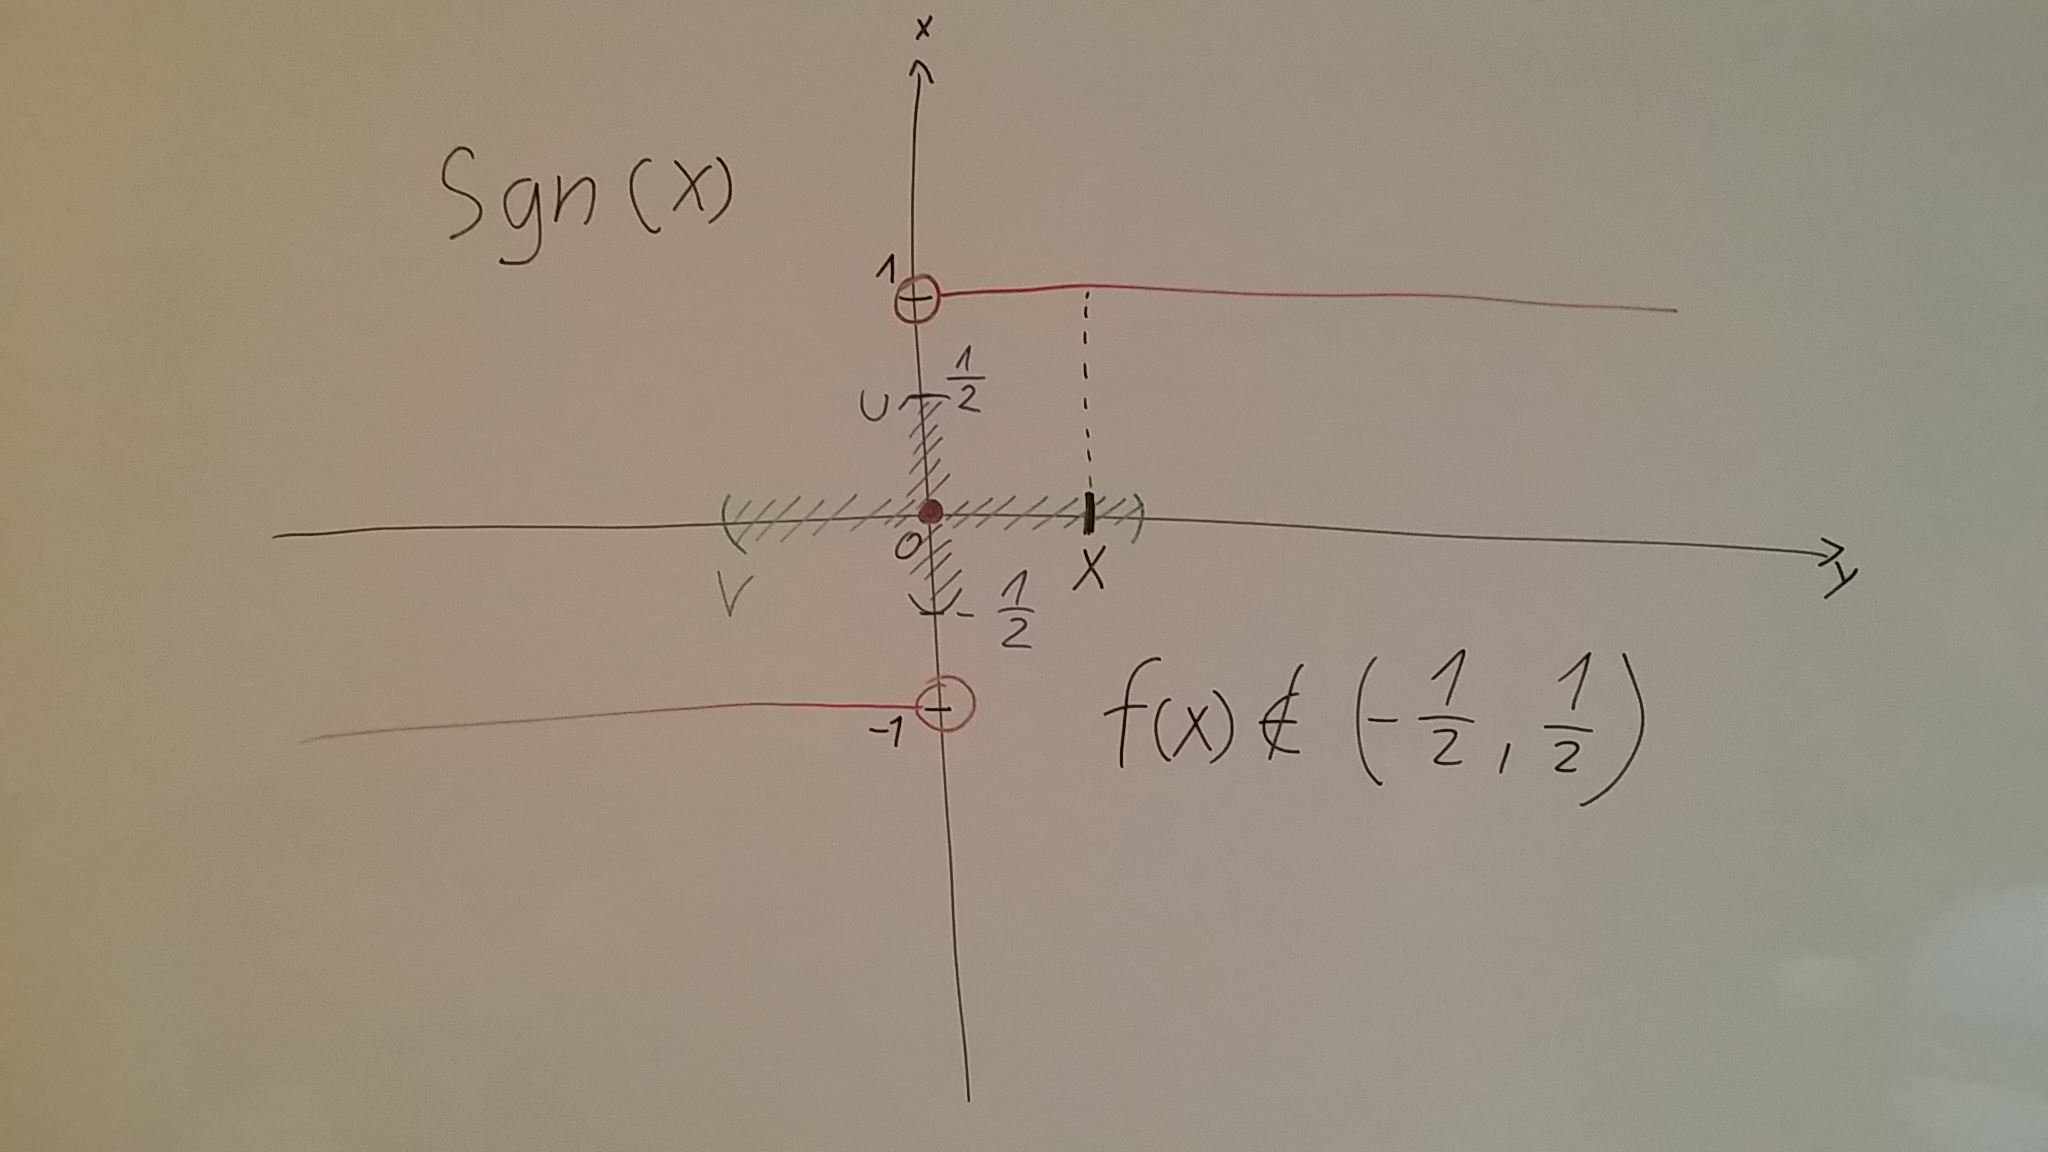 x
Sgn(x)
1
1/2
U
0
X
V
y
- 1/2
-1
f(x) ∉ (-1/2, 1/2)